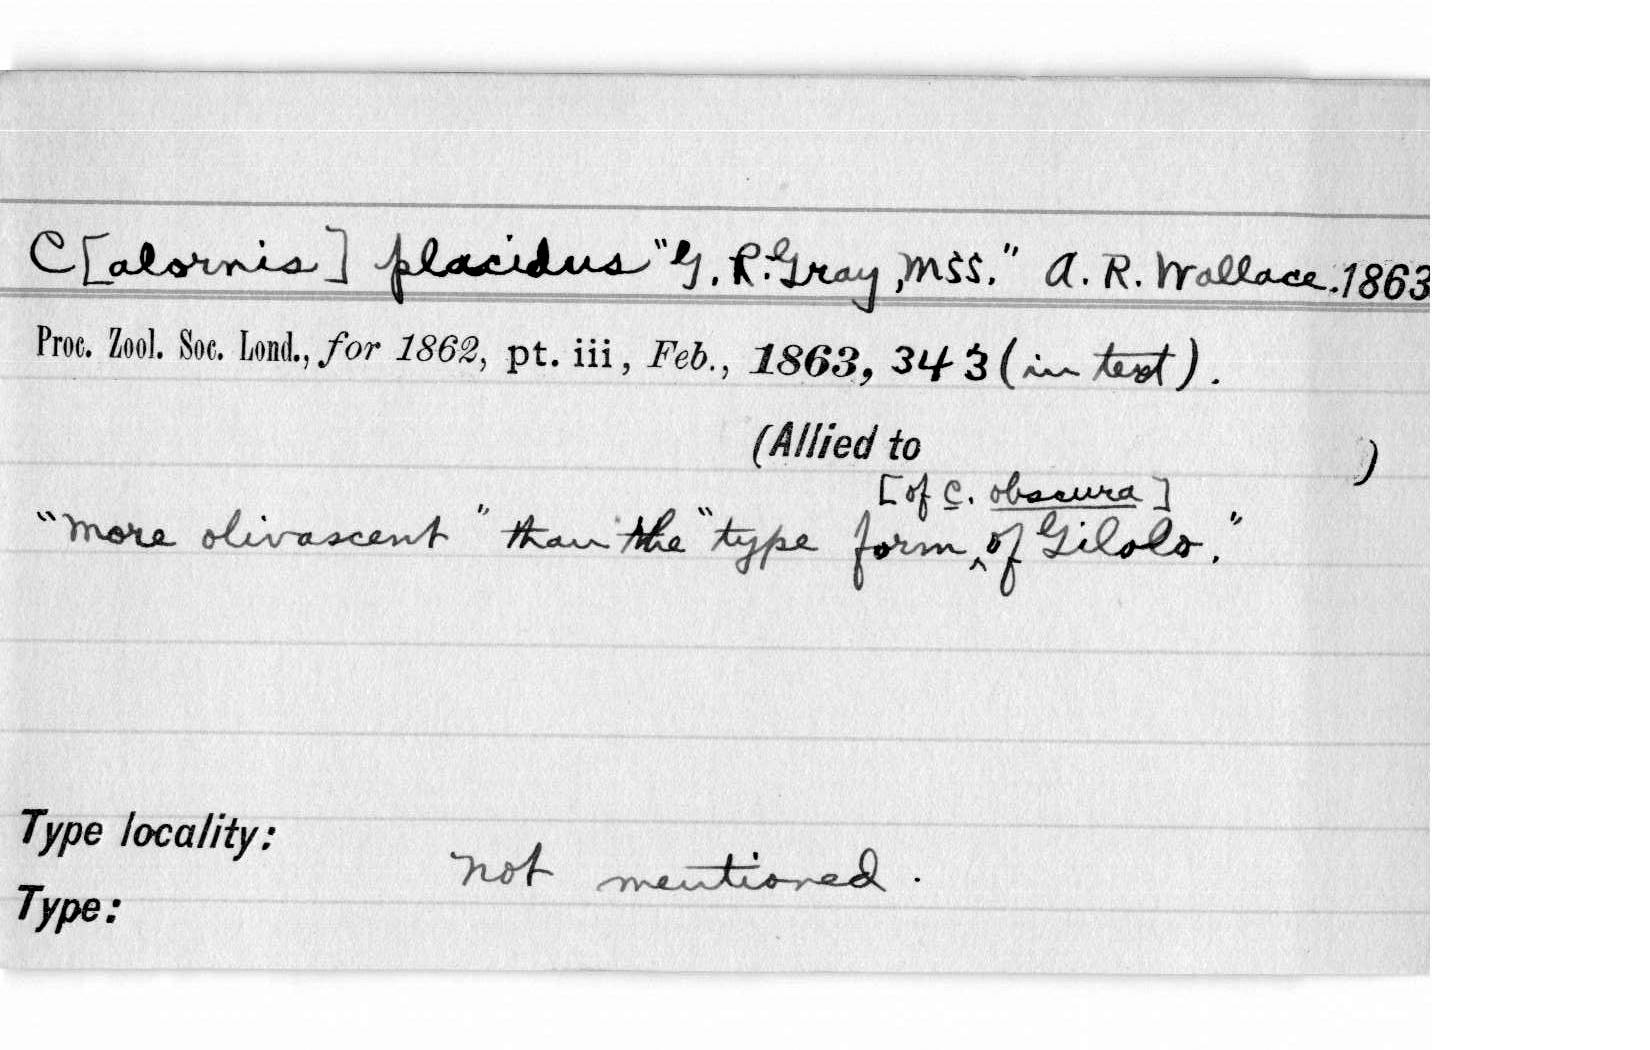 C[alornis] placidus "G. R. Gray, MSS." A. R. Wallace. 1863
Proc. Zool. Soc. Lond., for 1862, pt. iii, Feb., 1863, 343 (in text).
(Allied to )
[of C. obscura]
"more olivascent" than the "type form ^ of Gilolo."
Type locality:
not mentioned.
Type: